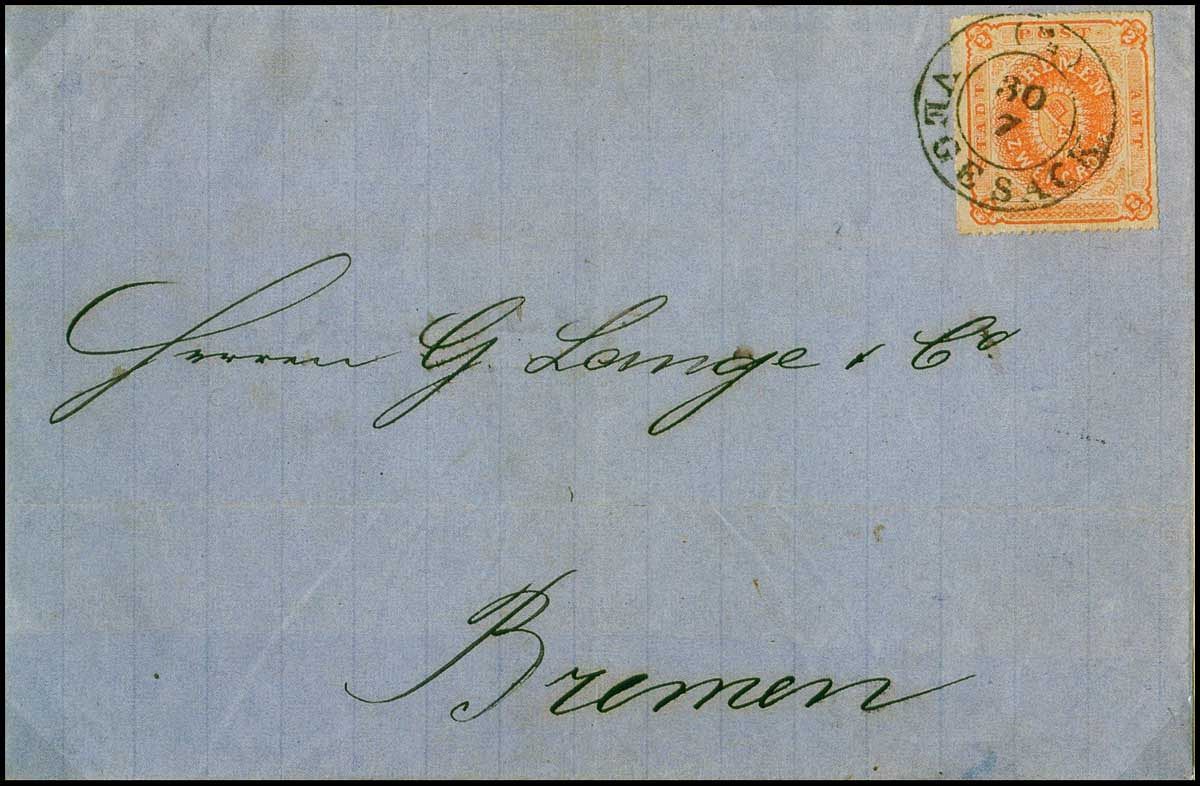 POST
STADT
AMT
BREMEN
2
VEGESACK
30
7
Herren G. Lange & Co.
Bremen